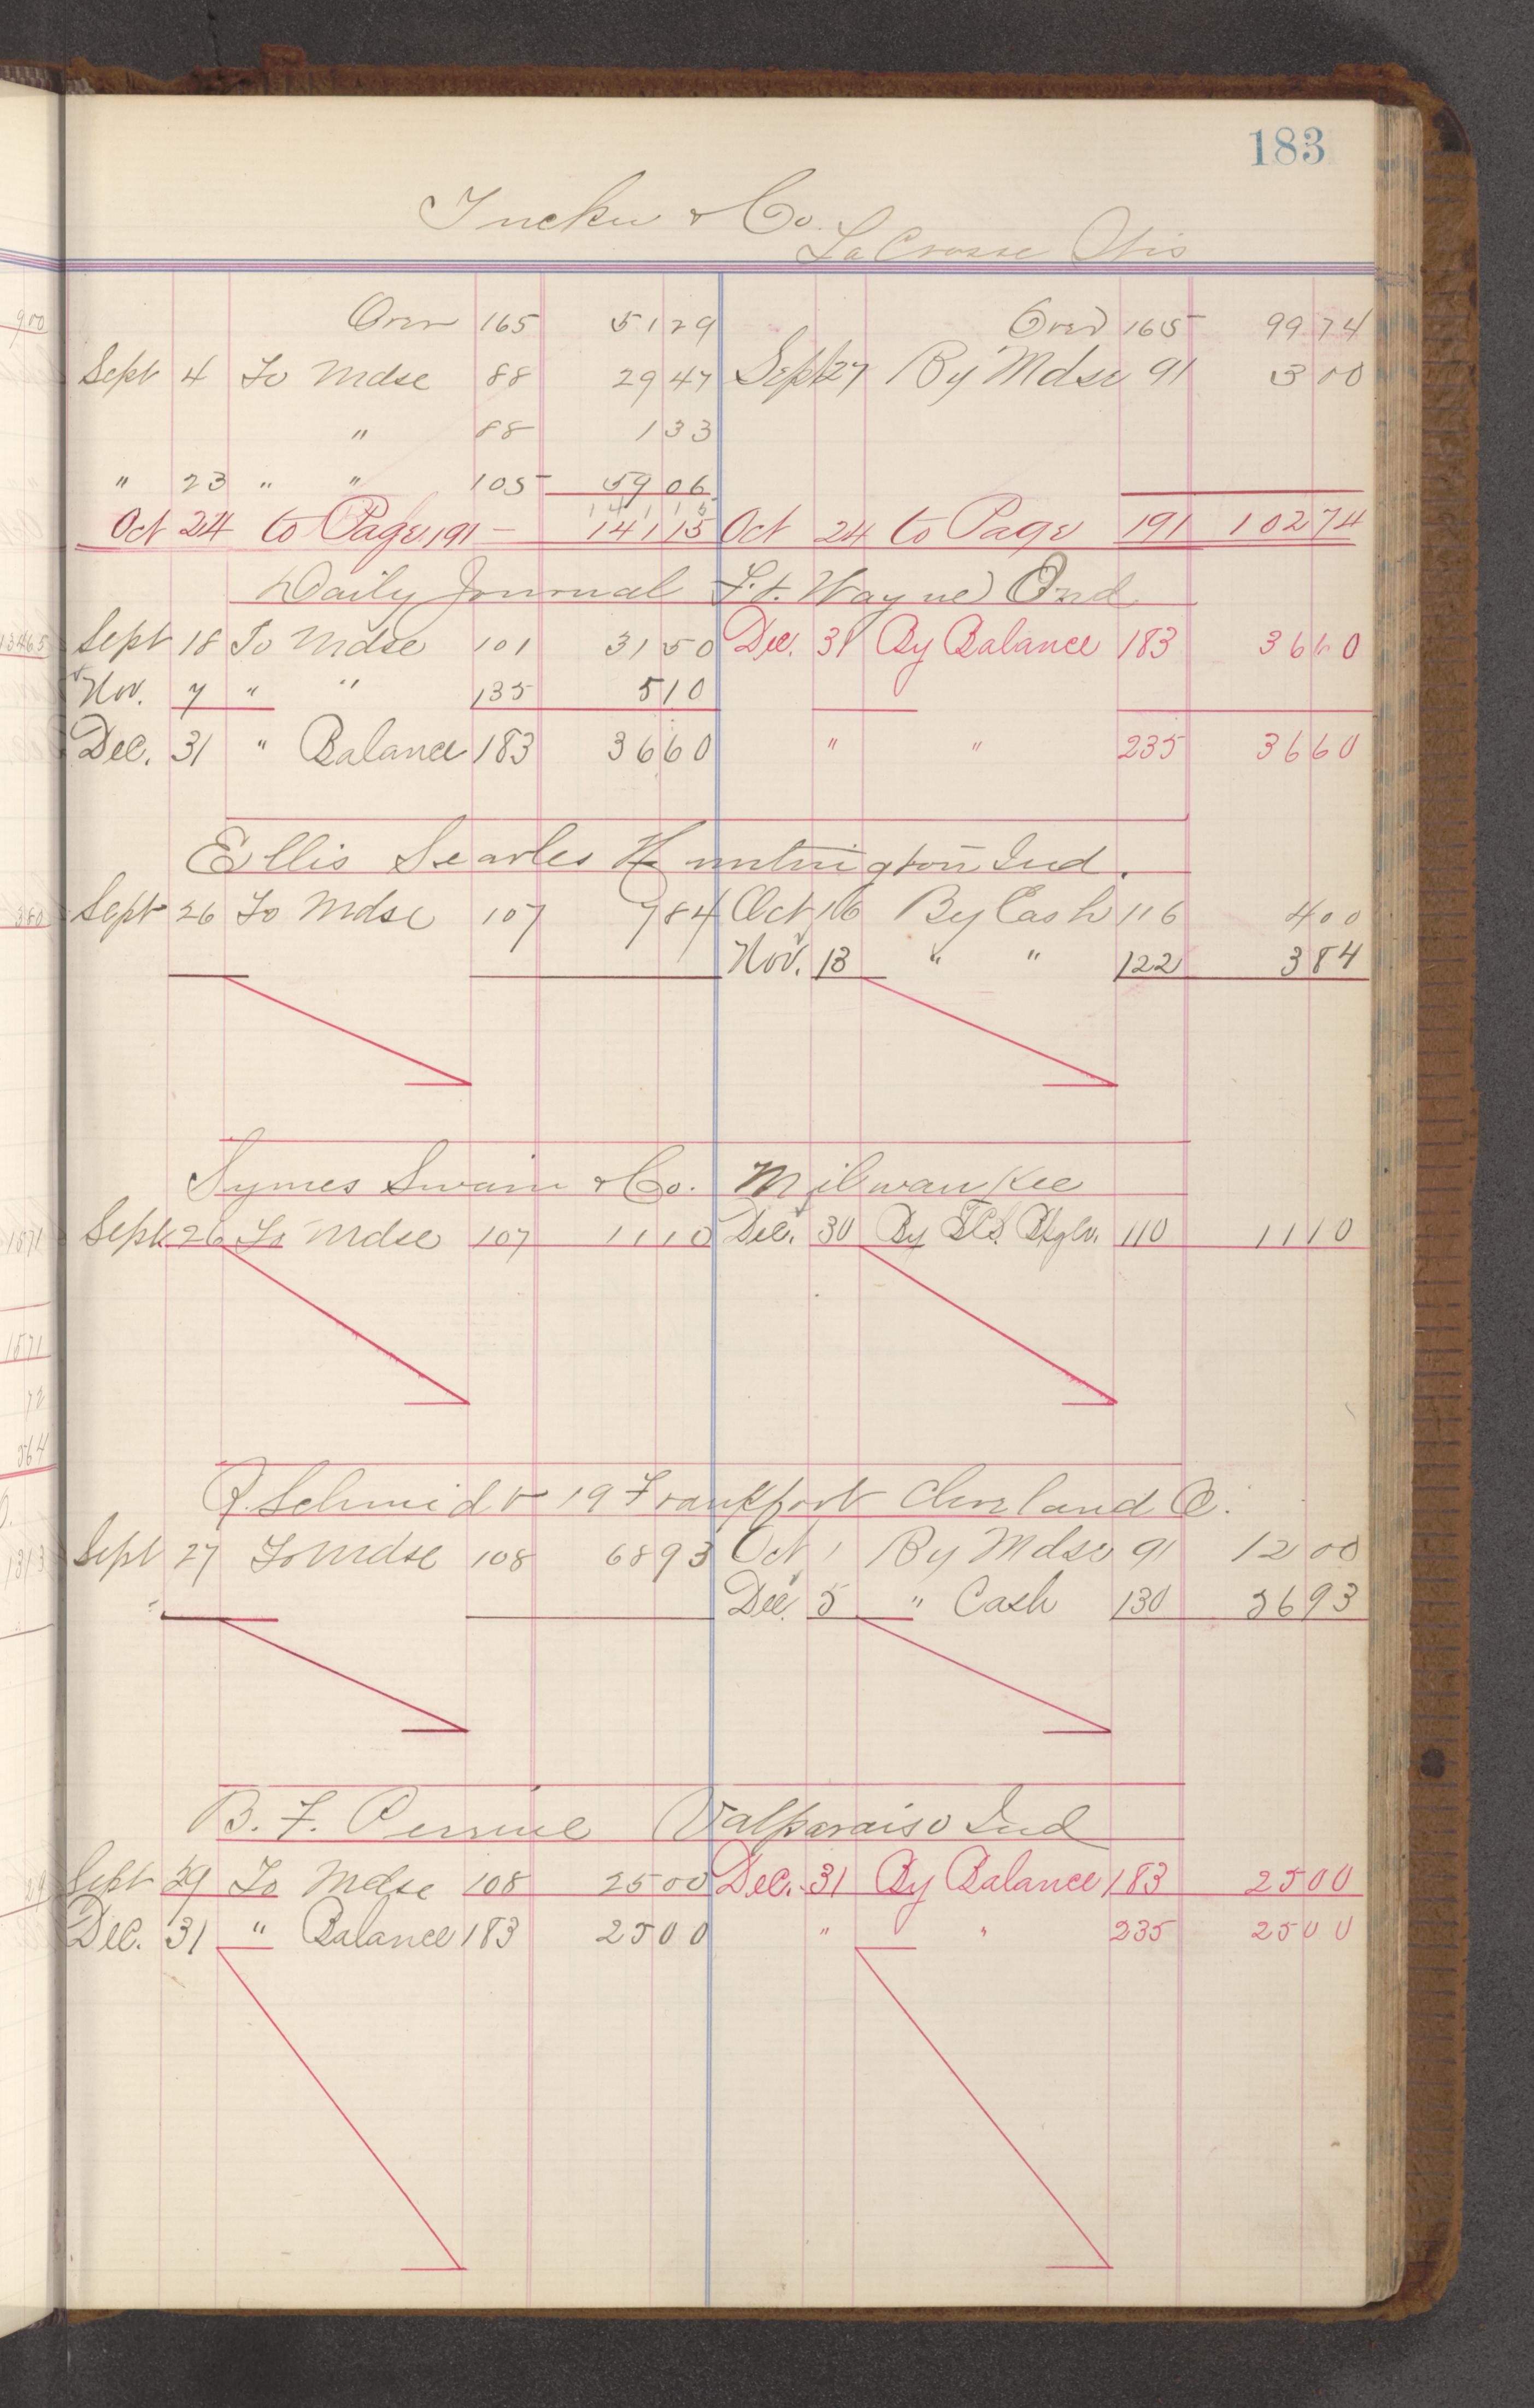 183
Tucker & Co.
LaCrosse Wis
Over 165 51 29 Over 165 99 74
Sept 4 To Mdse 88 29 47 Sept 27 By Mdse 91 3 00
" 88 1 33
" 23 " " 105 59 06
14 1 15
Oct 24 to Page 191 – 141 15 Oct 24 to Page 191 102 74
Daily Journal Ft. Wayne Ind
Sept 18 To Mdse 101 31 50 Dec. 31 By Balance 183 36 60
Nov. 7 " " 135 5 10
Dec. 31 " Balance 183 36 60 " " 235 36 60
Ellis Searles Huntington Ind.
Sept 26 To Mdse 107 7 84 Oct 16 By Cash 116 4 00
Nov. 13 " " 122 3 84
Symes Swain & Co. Milwaukee
Sept 26 To Mdse 107 11 10 Dec. 30 By 110 11 10
R. Schmidt 19 Frankfort Cleveland O.
Sept 27 To Mdse 108 68 93 Oct 1 By Mdse 91 12 00
Dec. 5 " Cash 130 56 93
B. F. Perrine Valparaiso Ind
Sept 29 To Mdse 108 25 00 Dec. 31 By Balance 183 25 00
Dec. 31 " Balance 183 25 00 " " 235 25 00